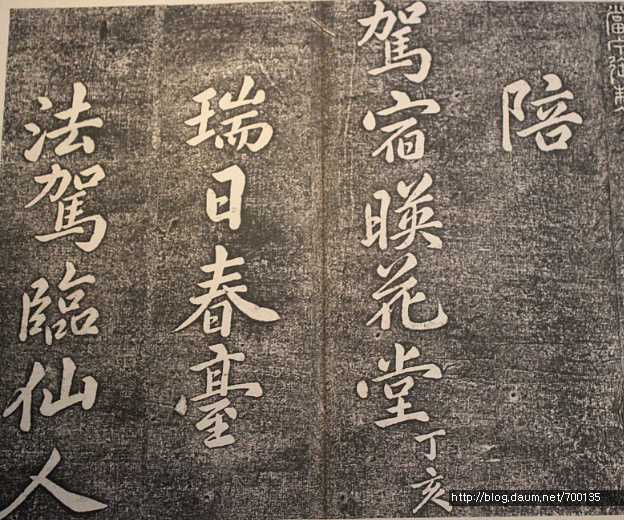 陪
駕宿暎花堂 丁亥
瑞日春臺
法駕臨仙人
http://blog.daum.net/700135